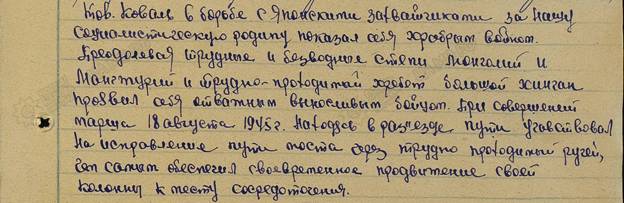 Тов. Коваль в борьбе с японскими захватчиками за нашу
социалистическую родину показал себя храбрым воином.
Преодолевая трудные и безводные степи Монголий и
Манжурий и трудно-проходимый хребет большой хинган
проявил себя отважным выносливым бойцом. При совершений
марша 18 августа 1945 г. Находясь в разъезде пути участвовал
на исправление пути моста через трудно проходимый ручей,
тем самым обеспечил своевременное продвижение своей
колонны к месту сосредоточения.